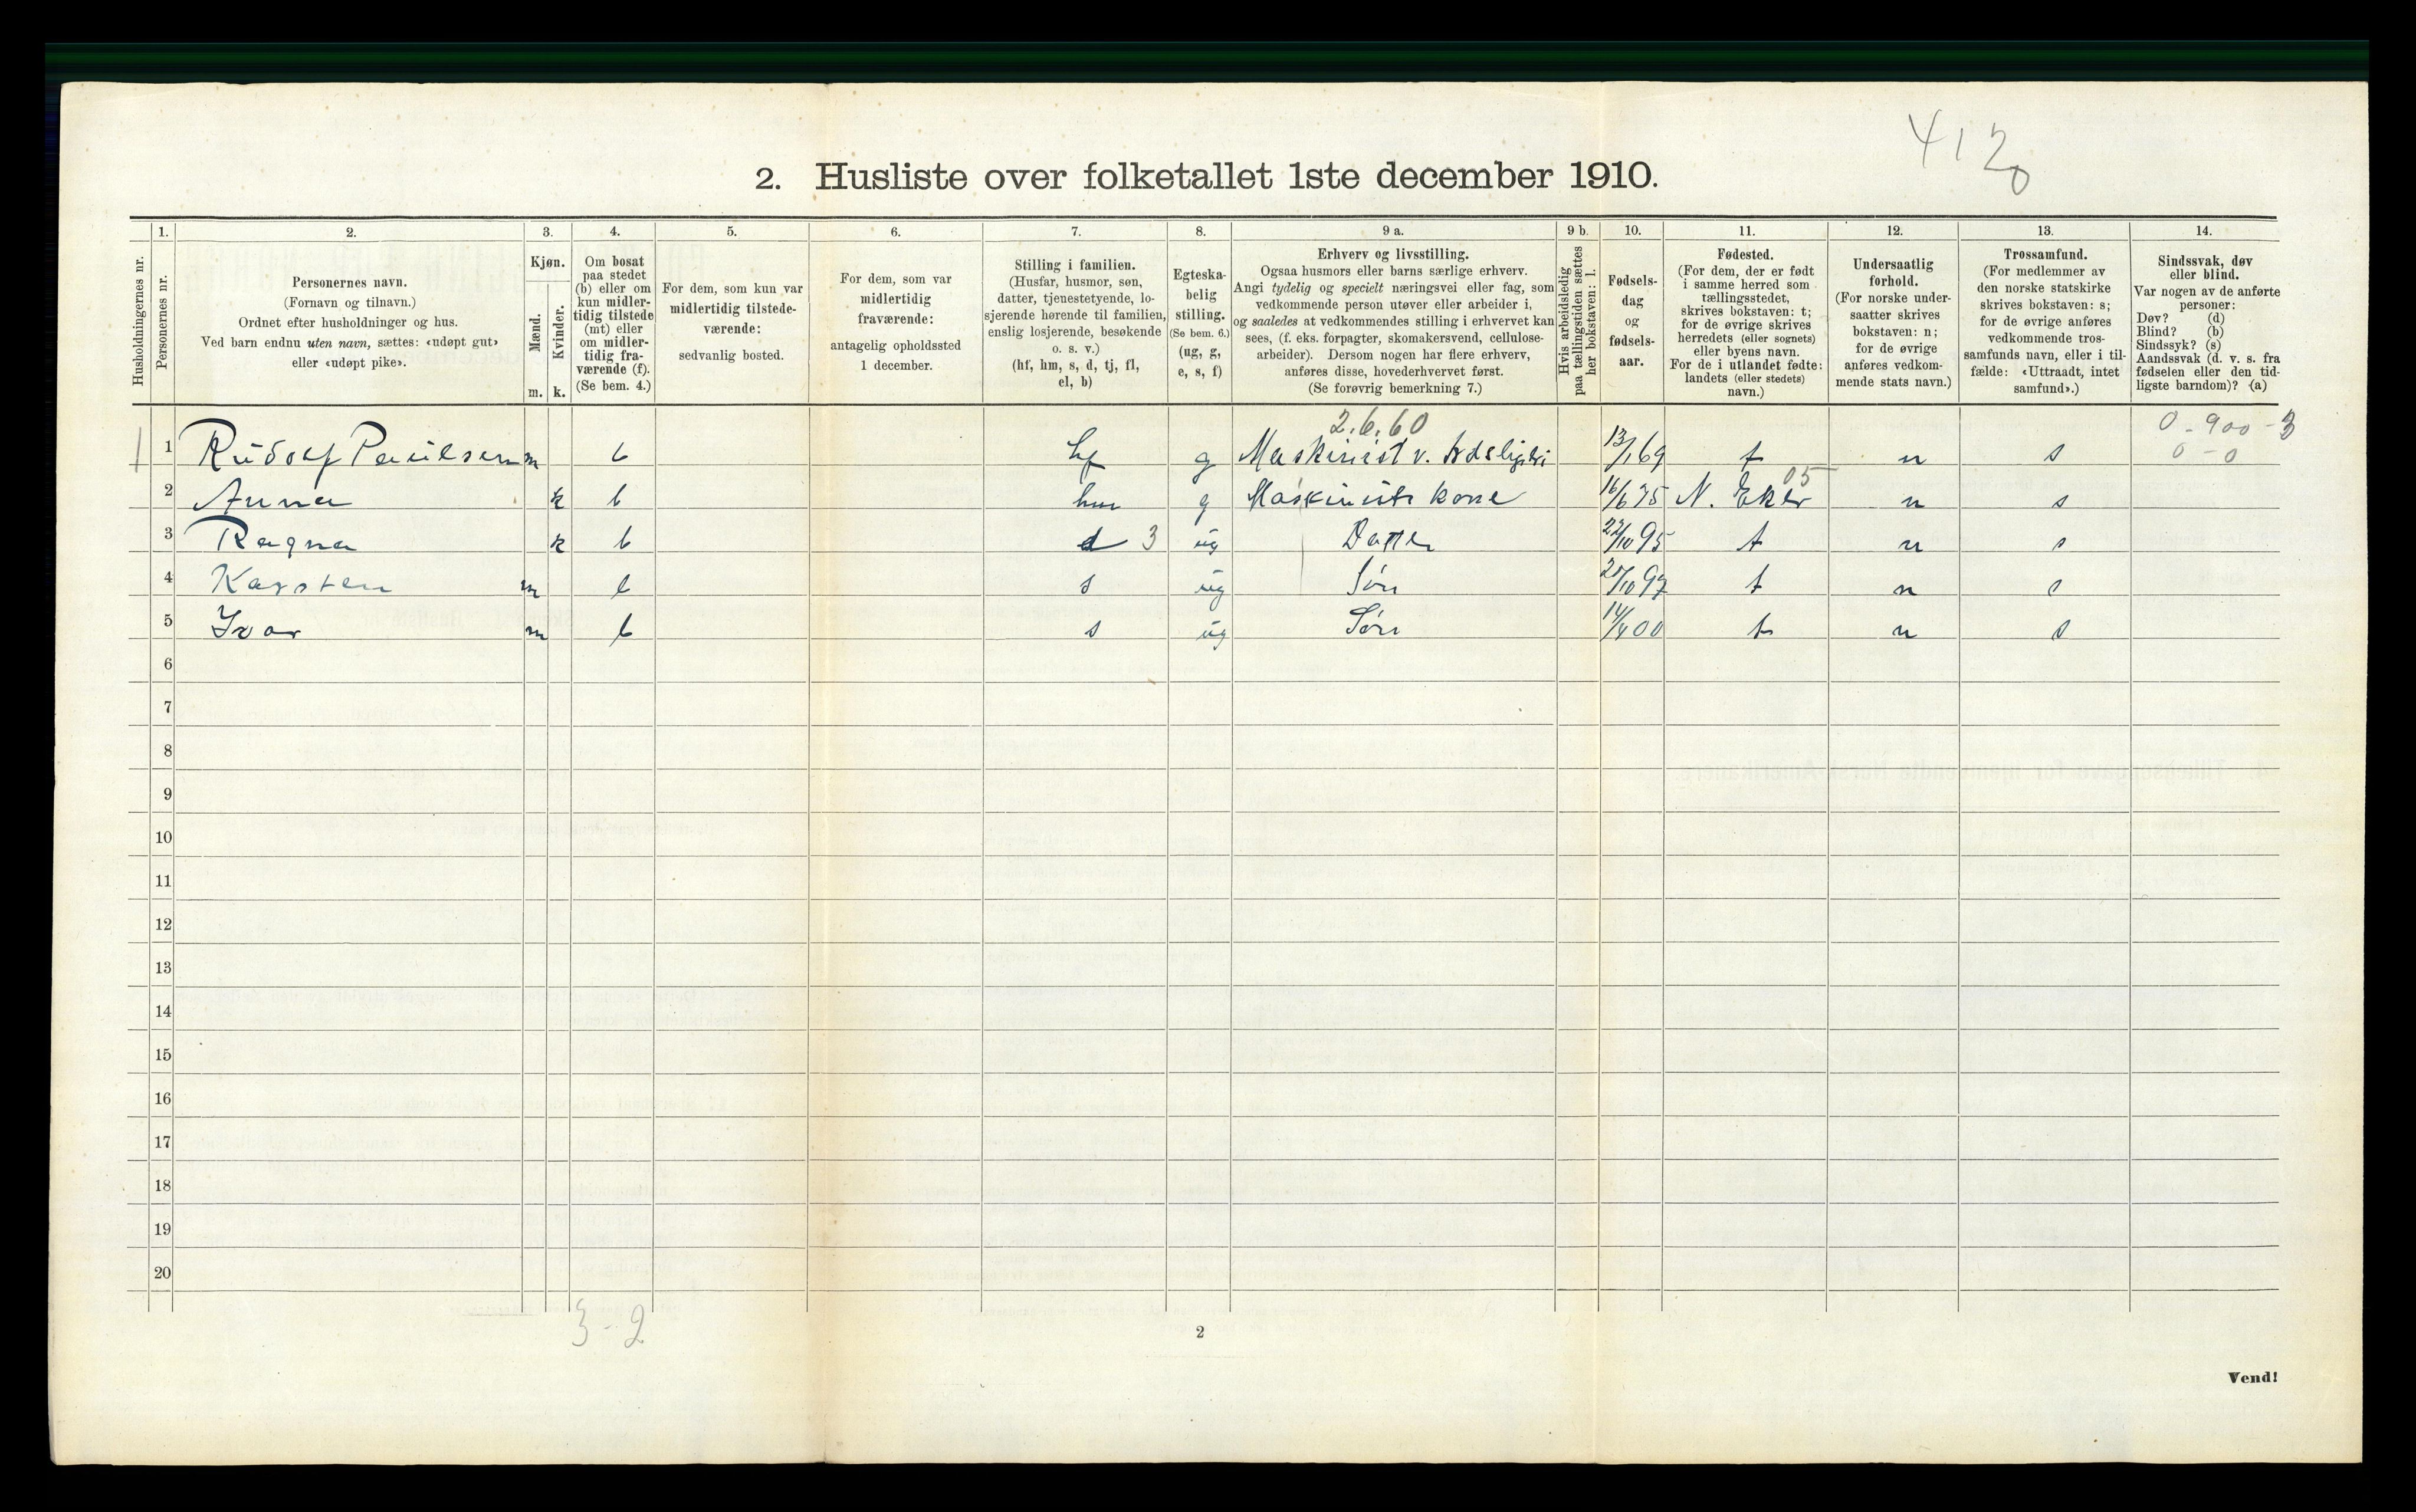 412
0
2. Husliste over folketallet 1ste december 1910.
Husholdningernes nr.
1.
Personernes nr.
2.
Personernes navn.
(Fornavn og tilnavn.)
Ordnet efter husholdninger og hus.
Ved barn endnu uten navn, sættes: «udøpt gut»
eller «udøpt pike».
3.
Kjøn.
Mænd.
Kvinder.
m. k.
4.
Om bosat
paa stedet
(b) eller om
kun midler-
tidig tilstede
(mt) eller
om midler-
tidig fra-
værende (f).
(Se bem. 4.)
5.
For dem, som kun var
midlertidig tilstede-
værende:
sedvanlig bosted.
6.
For dem, som var
midlertidig
fraværende:
antagelig opholdssted
1 december.
7.
Stilling i familien.
(Husfar, husmor, søn,
datter, tjenestetyende, lo-
sjerende hørende til familien,
enslig losjerende, besøkende
o. s. v.)
(hf, hm, s, d, tj, fl,
el, b)
8.
Egteska-
belig
stilling.
(Se bem. 6.)
(ug, g,
e, s, f)
9 a.
Erhverv og livsstilling.
Ogsaa husmors eller barns særlige erhverv.
Angi tydelig og specielt næringsvei eller fag, som
vedkommende person utøver eller arbeider i,
og saaledes at vedkommendes stilling i erhvervet kan
sees, (f. eks. forpagter, skomakersvend, cellulose-
arbeider). Dersom nogen har flere erhverv,
anføres disse, hovederhvervet først.
(Se forøvrig bemerkning 7.)
9 b.
Hvis arbeidsledig
paa tællingstiden sættes
her bokstaven: l.
10.
Fødsels-
dag
og
fødsels-
aar.
11.
Fødested.
(For dem, der er født
i samme herred som
tællingsstedet,
skrives bokstaven: t;
for de øvrige skrives
herredets (eller sognets)
eller byens navn.
For de i utlandet fødte:
landets (eller stedets)
navn.)
12.
Undersaatlig
forhold.
(For norske under-
saatter skrives
bokstaven: n;
for de øvrige
anføres vedkom-
mende stats navn.)
13.
Trossamfund.
(For medlemmer av
den norske statskirke
skrives bokstaven: s;
for de øvrige anføres
vedkommende tros-
samfunds navn, eller i til-
fælde: «Uttraadt, intet
samfund».)
14.
Sindssvak, døv
eller blind.
Var nogen av de anførte
personer:
Døv? (d)
Blind? (b)
Sindssyk? (s)
Aandssvak (d. v. s. fra
fødselen eller den tid-
ligste barndom)? (a)
2.6.60
0-900-3
0-0
1 1 Rudolf Paulsen m b hf g Maskinist v. 13/1 69 t n s
05
2 Anna k b hm g Maskinists kone 16/6 75 N. Eker n s
3 Ragna k b d 3 ug Datter 22/10 95 t n s
4 Karsten m b s ug Søn /10 97 t n s
5 Ivar m b s ug Søn 14/4 00 t n s
6
7
8
9
10
11
12
13
14
15
16
17
18
19
20
3-2
2
Vend!